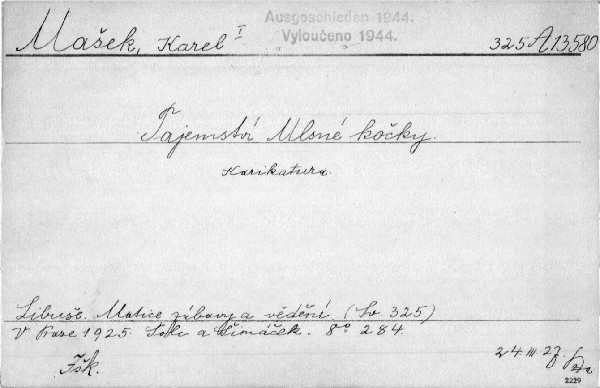 Ausgeschieden 1944.
Vyloučeno 1944.
Mašek, Karel I 325 A 13580
Tajemství Mlsné kočky.
Karikatura.
Libuše. Matice zábavy a vědění. (Sv. 325)
V Praze 1925. Šolc a Šimáček. 8° 284.
Fšk.
24 III 27
2229